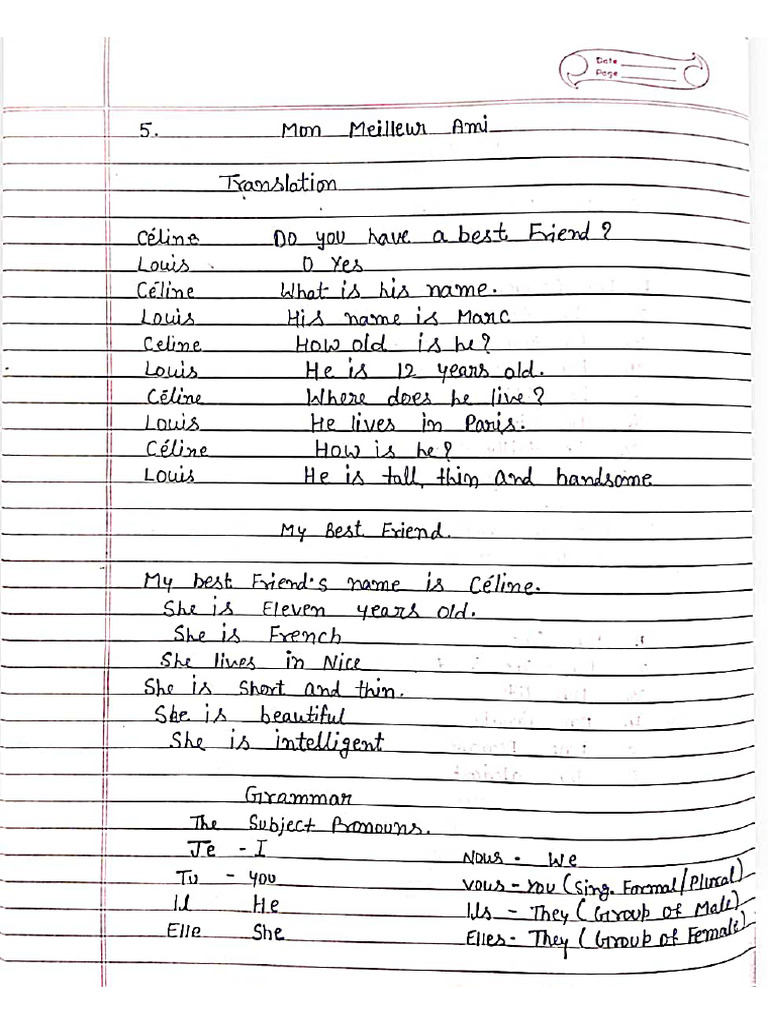 Date
Page
5. Mon Meilleur Ami
Translation
Céline Do you have a best Friend?
Louis O Yes
Céline What is his name.
Louis His name is Marc
Celine How old is he?
Louis He is 12 years old.
Céline Where does he live?
Louis He lives in Paris.
Céline How is he?
Louis He is tall, thin and handsome
My Best Friend.
My best Friend's name is Céline.
She is Eleven years old.
She is French
She lives in Nice
She is short and thin.
She is beautiful
She is intelligent
Grammar
The Subject Pronouns.
Je - I Nous - We
Tu - you vous - You (Sing. Formal/Plural)
Il He Ils - They (Group of Male)
Elle She Elles - They (Group of Female)